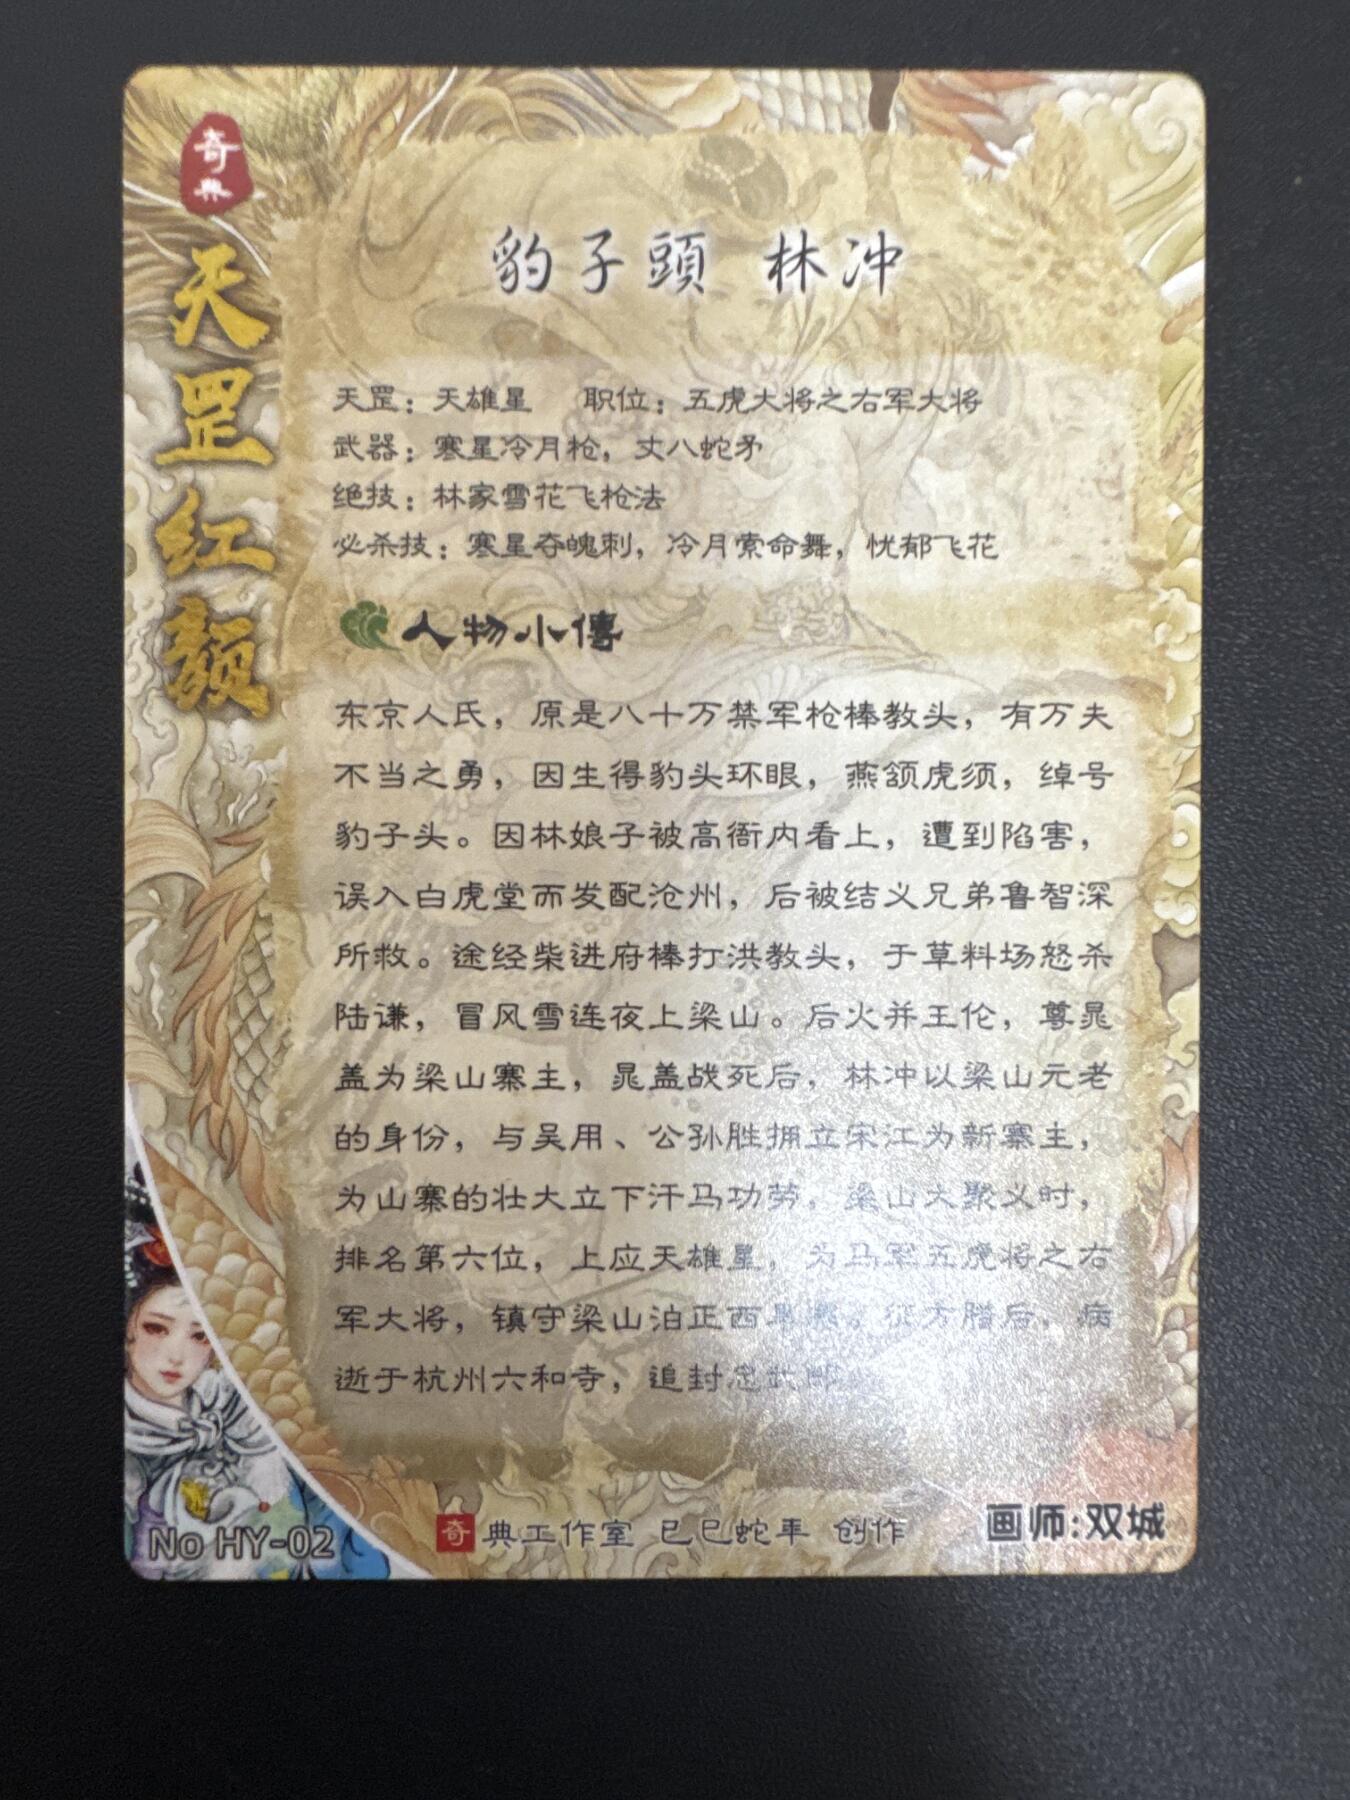 奇典
天罡红颜
豹子頭 林冲
天罡：天雄星 职位：五虎大将之右军大将
武器：寒星冷月枪，丈八蛇矛
绝技：林家雪花飞枪法
必杀技：寒星夺魄刺，冷月索命舞，忧郁飞花
人物小傳
东京人氏，原是八十万禁军枪棒教头，有万夫
不当之勇，因生得豹头环眼，燕颔虎须，绰号
豹子头。因林娘子被高衙内看上，遭到陷害，
误入白虎堂而发配沧州，后被结义兄弟鲁智深
所救。途经柴进府棒打洪教头，于草料场怒杀
陆谦，冒风雪连夜上梁山。后火并王伦，尊晁
盖为梁山寨主，晁盖战死后，林冲以梁山元老
的身份，与吴用、公孙胜拥立宋江为新寨主，
为山寨的壮大立下汗马功劳，梁山大聚义时，
排名第六位，上应天雄星，为马军五虎将之右
军大将，镇守梁山泊正西旱寨。征方腊后，病
逝于杭州六和寺，追封忠武郎
No HY-02
奇典工作室 己巳蛇年 创作
画师:双城